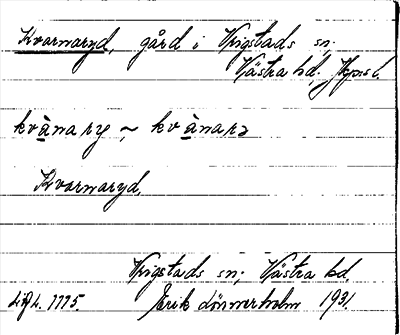 Kvarnaryd, gård i Vrigstads sn;
Västra hd; Jkpgs l.
kvànary ~ kvànarə
Kvarnaryd
Vrigstads sn; Västra hd
Lifl. 1775. Erik Lönnerholm 1931.